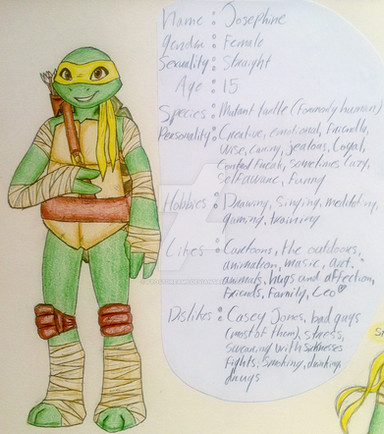 Name : Josephine
Gender : Female
Sexuality : Straight
Age : 15
Species : Mutant turtle (Formerly human)
Personality : Creative, emotional, Friendly,
wise, caring, jealous, Loyal,
Control Freak, sometimes lazy,
selfaware, Funny
Hobbies : Drawing, Singing, meditating,
gaming, training
Likes : Cartoons, the outdoors,
animation, music, art,
animals, hugs and affection,
Friends, Family, Leo
Dislikes : Casey Jones, bad guys
(most of them), stress,
swearing, with
Fights, Smoking, drinking,
drugs